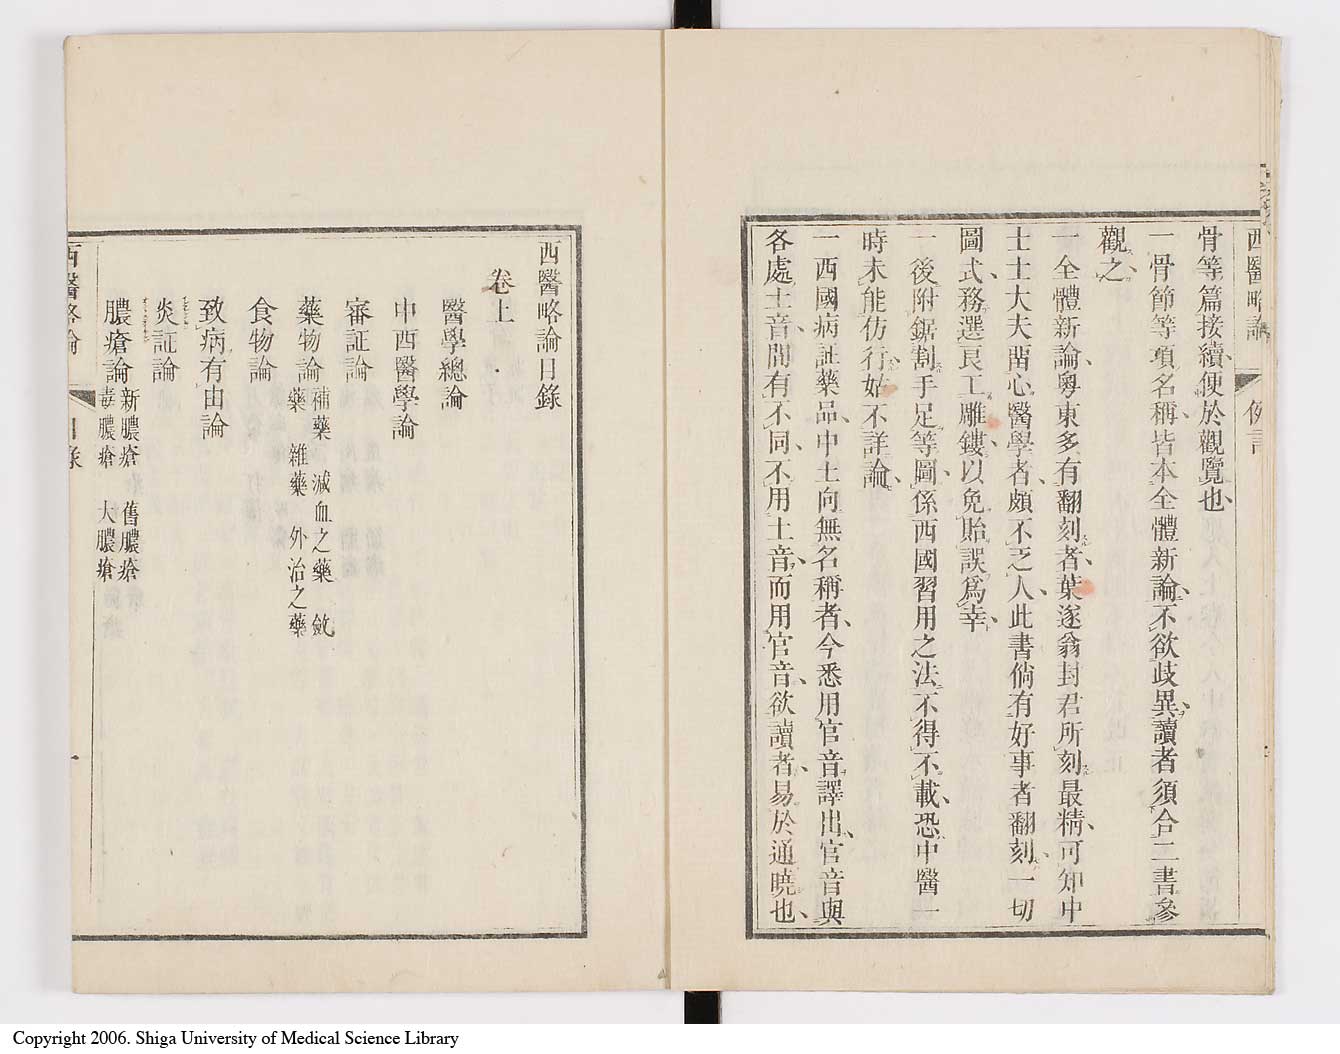 西醫略論 例言
骨等篇接續便於觀覽也
一骨節等項名稱皆本全體新論不欲歧異讀者須合二書參
觀之
一全體新論粤東多有翻刻者葉遂翁封君所刻最精可知中
士士大夫畱心醫學者頗不乏人此書倘有好事者翻刻一切
圖式務選良工雕鏤以免貽誤爲幸
一後附鋸割手足等圖係西國習用之法不得不載恐中醫一
時未能仿行姑不詳論
一西國病証藥品中土向無名稱者今悉用官音譯出官音與
各處土音間有不同不用土音而用官音欲讀者易於通曉也
西醫略論目錄
卷上
醫學總論
中西醫學論
審証論
藥物論 補藥 減血之藥 斂
藥 雜藥 外治之藥
食物論
致病有由論
炎証論
膿瘡論 新膿瘡 舊膿瘡
毒膿瘡 大膿瘡
西醫略論 目錄 一
Copyright 2006. Shiga University of Medical Science Library